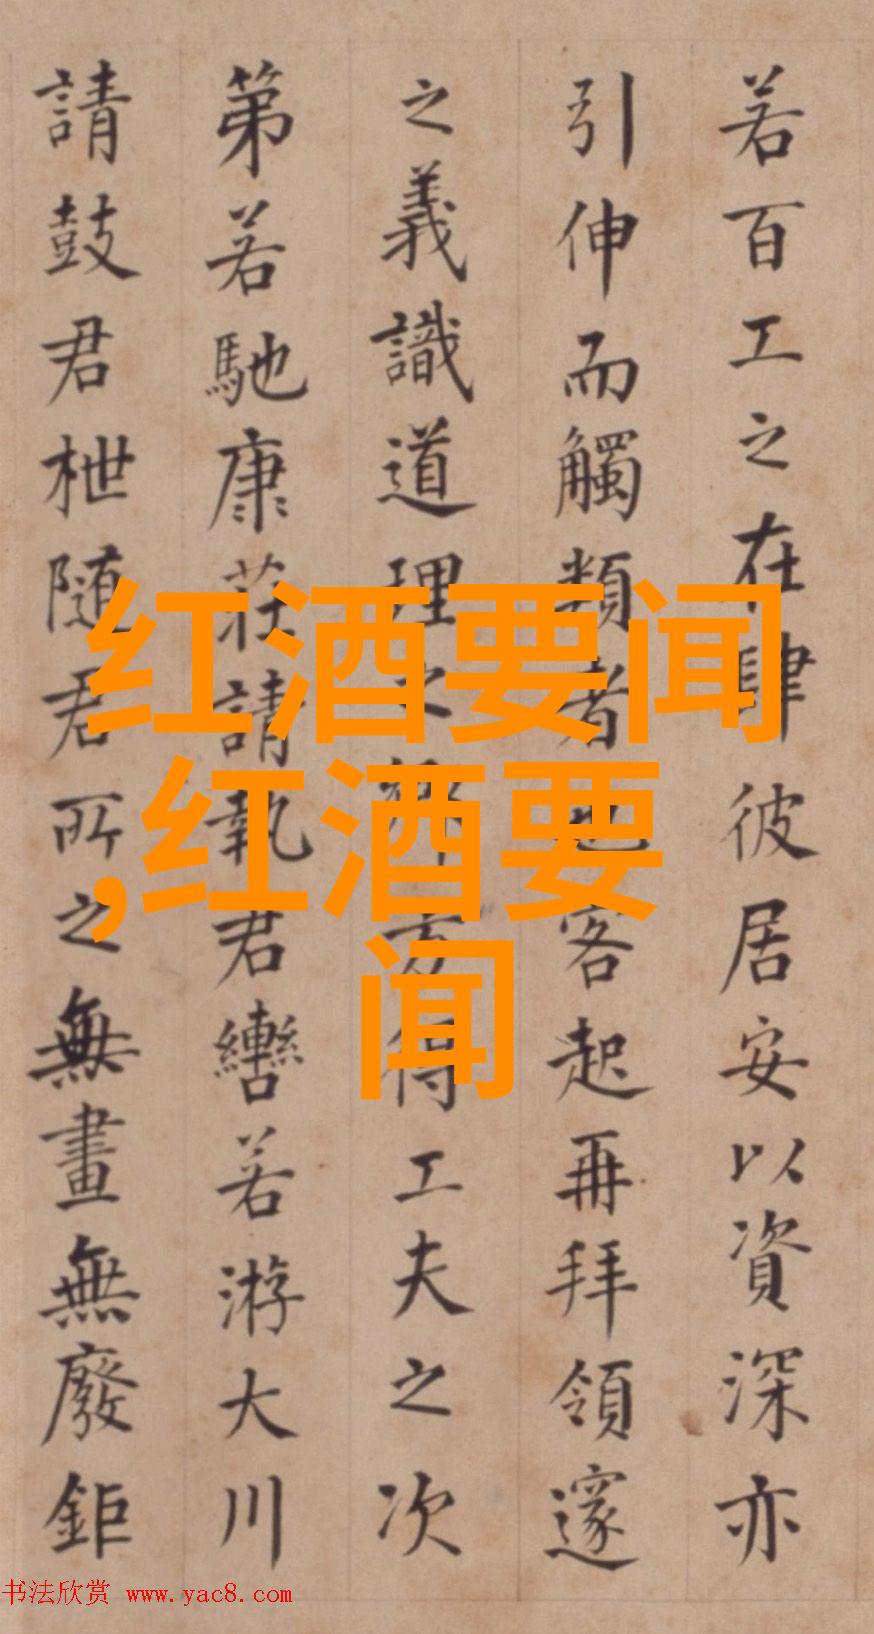 若百工之在肆彼居安以資深亦
引伸而觸類者也客起再拜領邃
之義識道理之方得工夫之次
第若馳康莊請執君轡若游大川
請鼓君枻随君所之無畫無廢鉅
红酒要闻
,红酒要
闻
书法欣赏 www.yac8.com